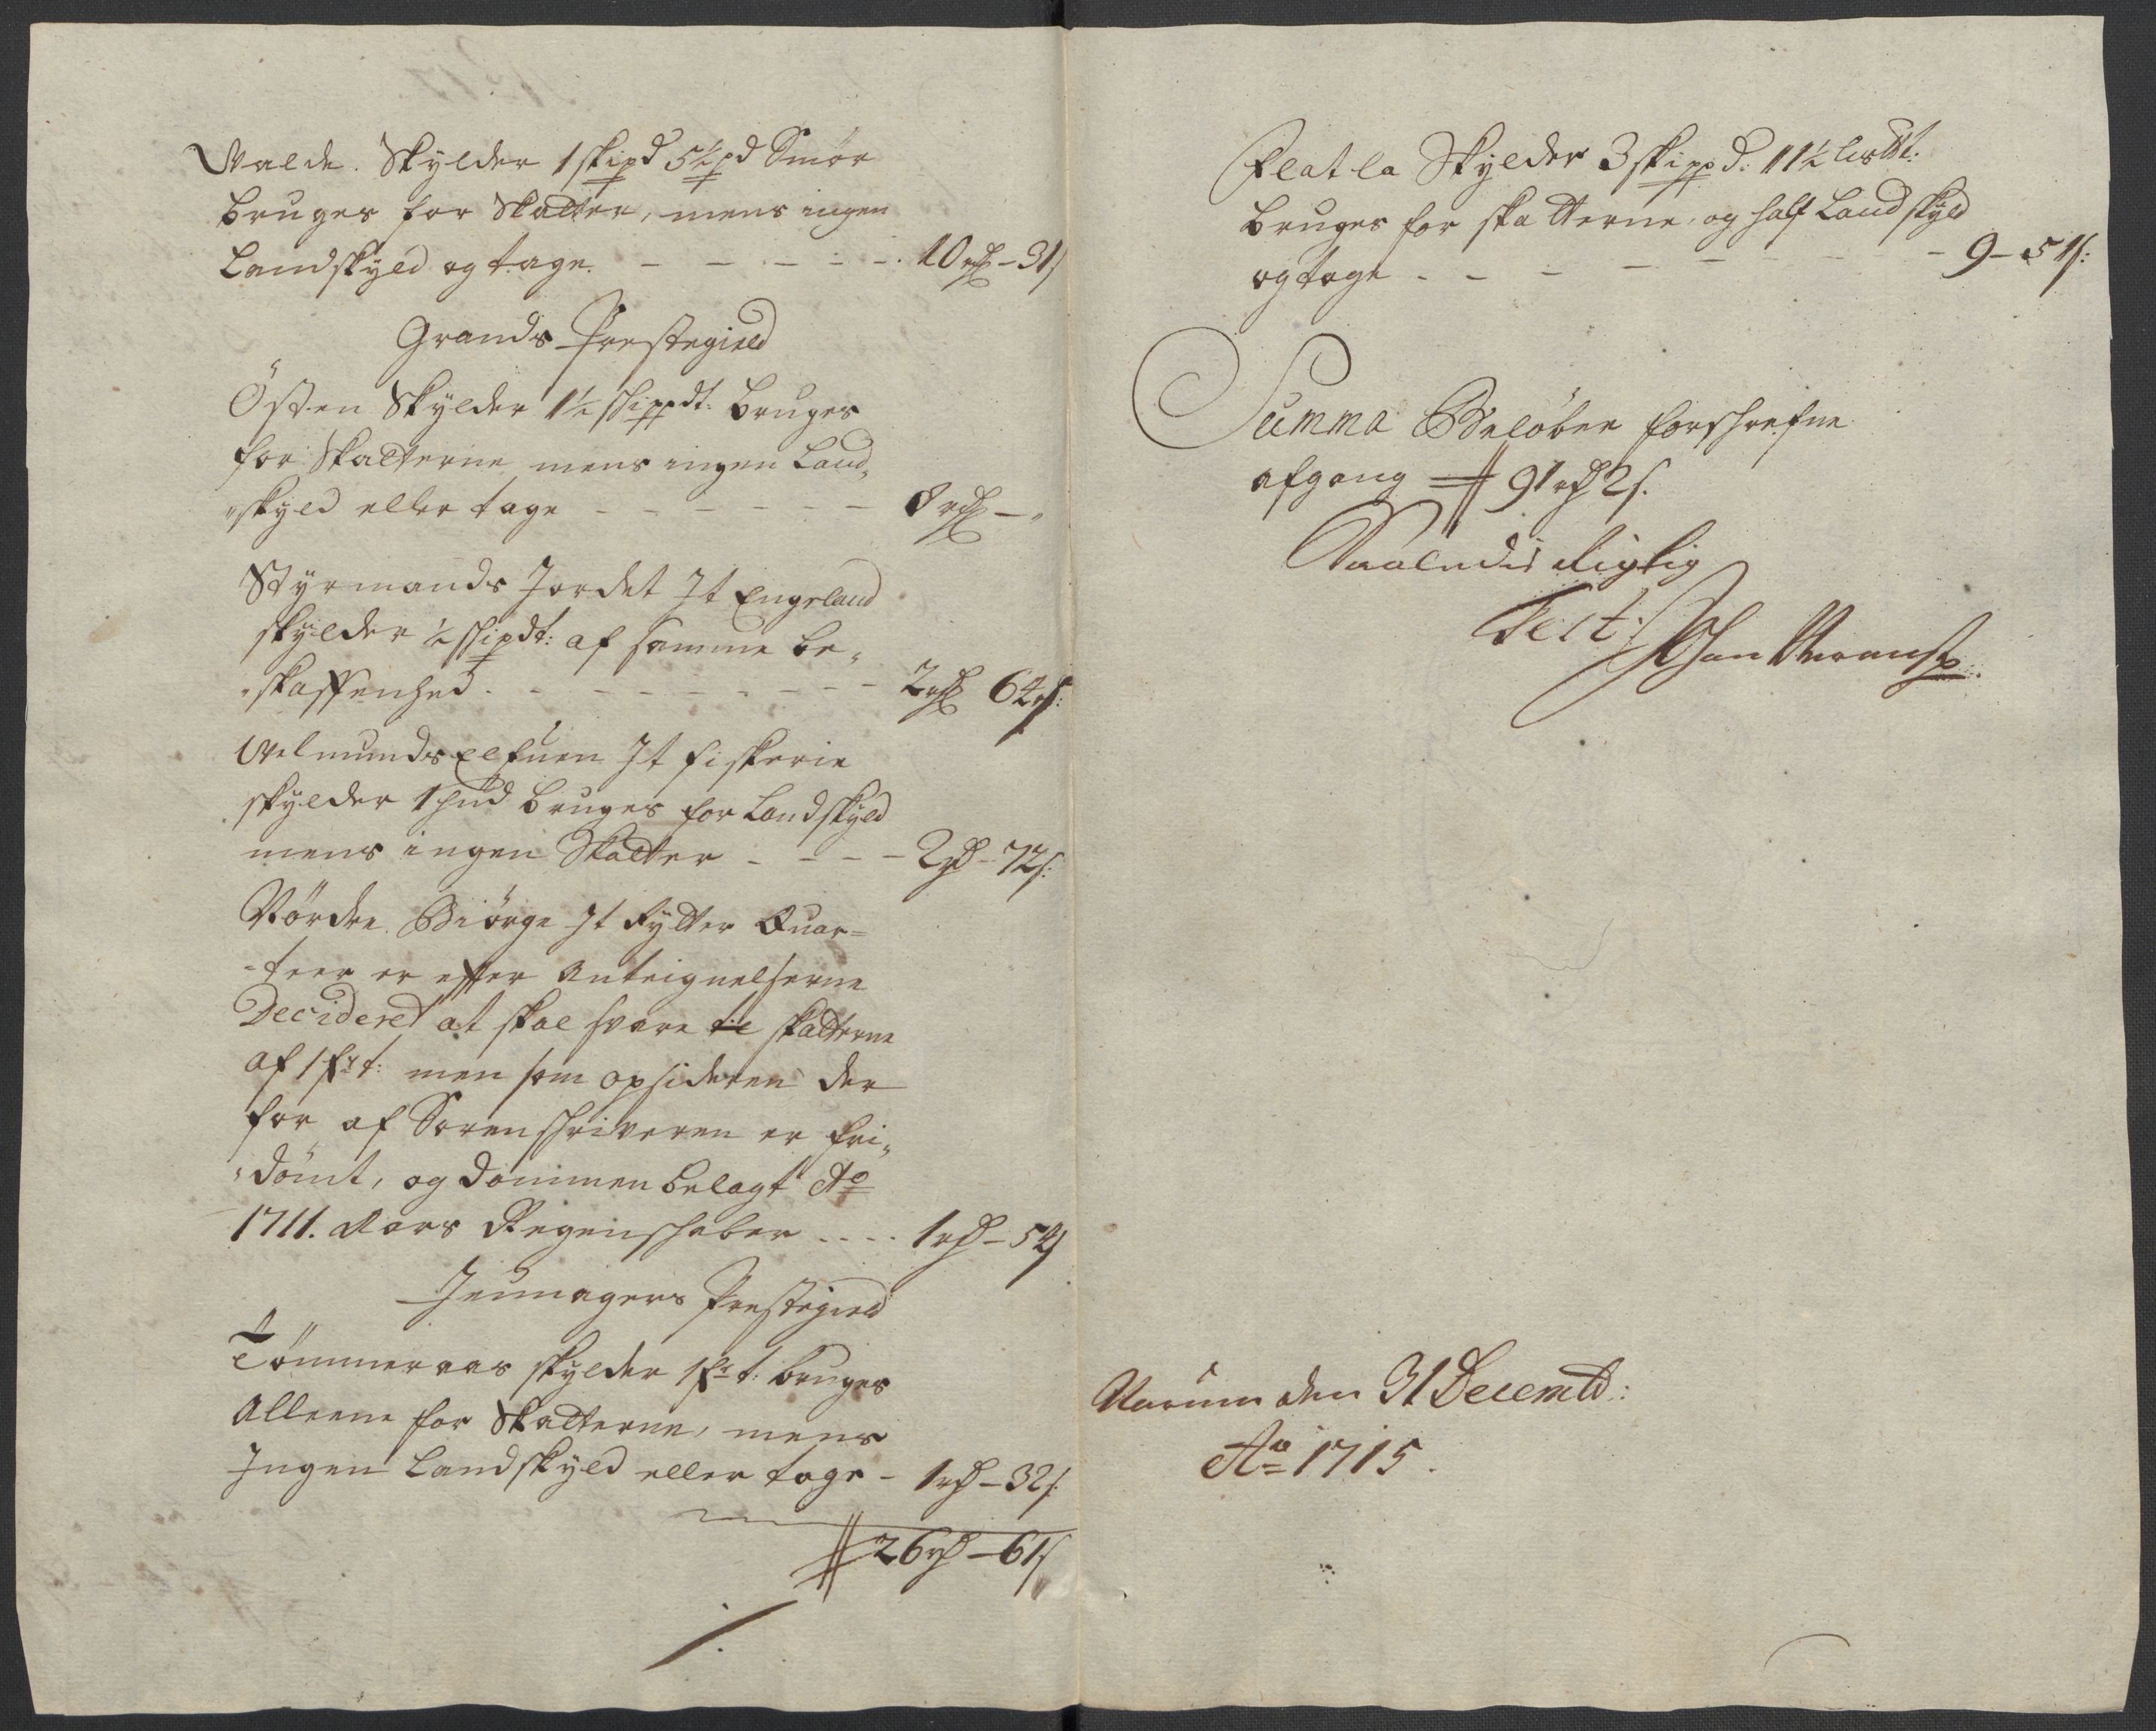 Walde. Skylder 1 skipd 5½ pd Smør
bruges for Skatter, mens ingen
Landskyld og tage. - - - - - 10 rd - 31 s
Grands Prestegield
Østen Skylder 1½ skippdt: bruges
for Skatterne mens ingen Land„
„skyld eller tage - - - - - - 8 rd - „
Styrmands Jordet It Engeland
skylder ½ skipdt: af samme be„
„skaffenhed. - - - - - - - - 2 rd 64 s:
Velmunds Elfuen It fiskerie
skylder 1 hud bruges for Landskyld
mens ingen Skatter - - - - 2 rd - 72 s:
Nördre Biörge It Rytter Quar=
=teer er efter Anteignelserne
Decideret at skal svare til skatterne
af 1 f: t: men som opsideren der
for af Sorenskriveren er fri„
„dömt, og dommen belagt Ao
1711. Aars Regenskaber .... 1 rd - 54 s
Jeunagers Prestegield
Tömmeraas skylder 1 f: t: bruges
Alleene for Skatterne, mens
Ingen Landskyld eller tage - 1 rd - 32 s:
26 rd - 61 s
Flatla Skylder 3 skippd: 11½ lis##t:
bruges for skatterne, og half Landskyld
og tage - - - - - - - - 9 - 51 s:
Summa Beløber forskrefne
afgang 91 rd 2 s.
Saaledis Rigtig
Test:
Narum den 31 Decemb:
Ao 1715.